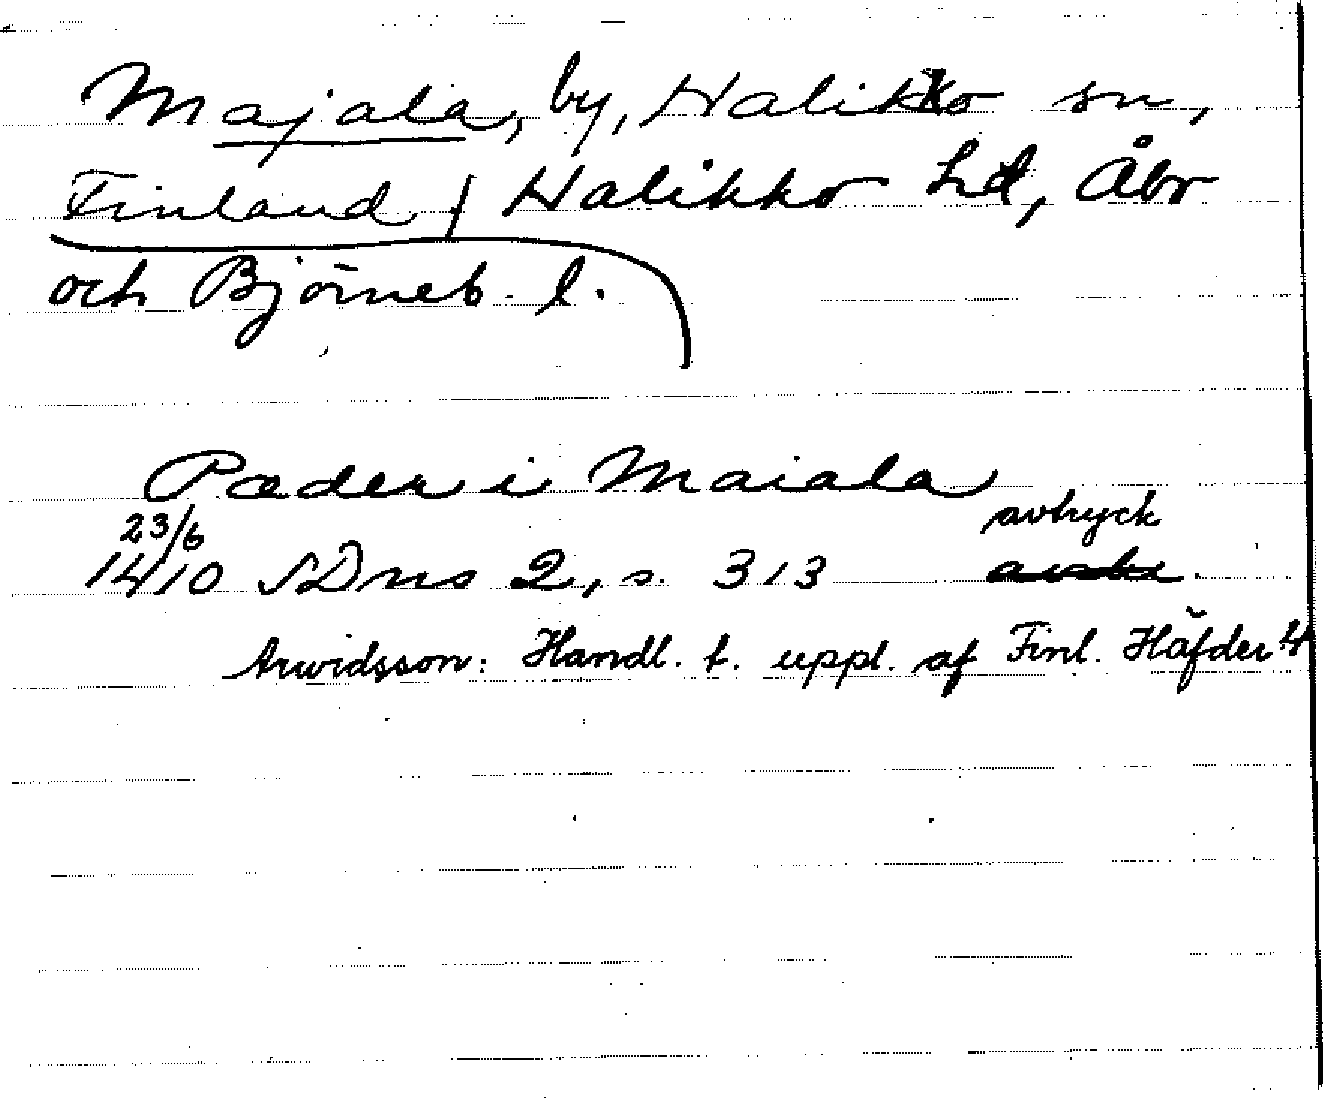 Majala, by, Halikko sn,
Finland / Halikko hd, Åbo
och Björneb. l.
Pæder i Maiala
23/6 avtryck
1410 SDns 2, s. 313
Arwidsson: Handl. t. uppl. af Finl. Häfder 4